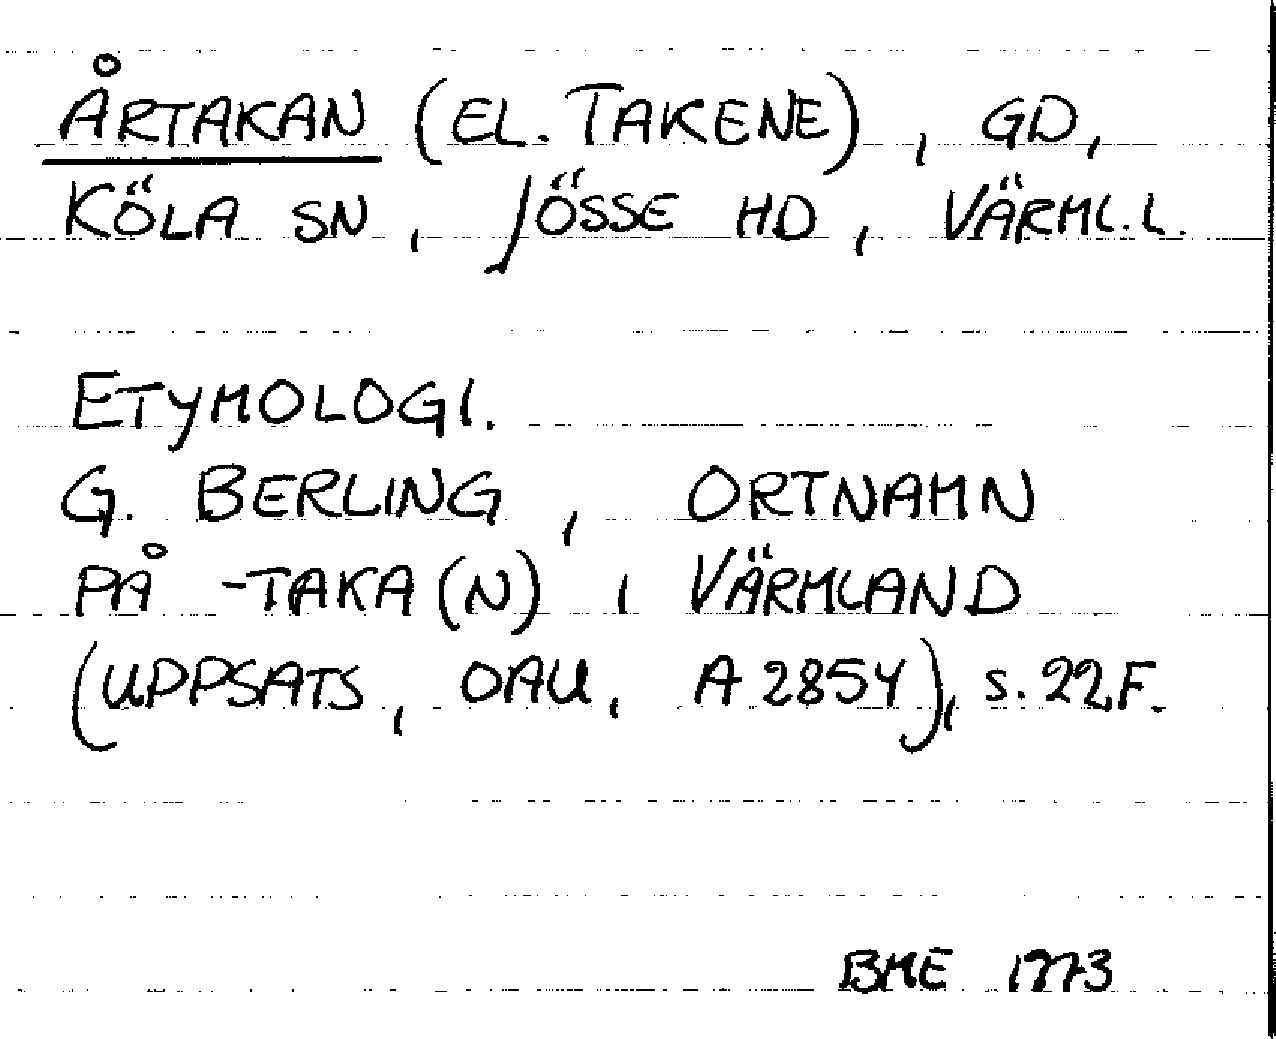 ÅRTAKAN (EL. TAKENE), GD,
KÖLA SN, JÖSSE HD, VÄRML.L.
ETYMOLOGI.
G. BERLING, ORTNAMN
PÅ -TAKA(N) I VÄRMLAND
(UPPSATS, OAU, A 2854), S. 22F.
BME 1973